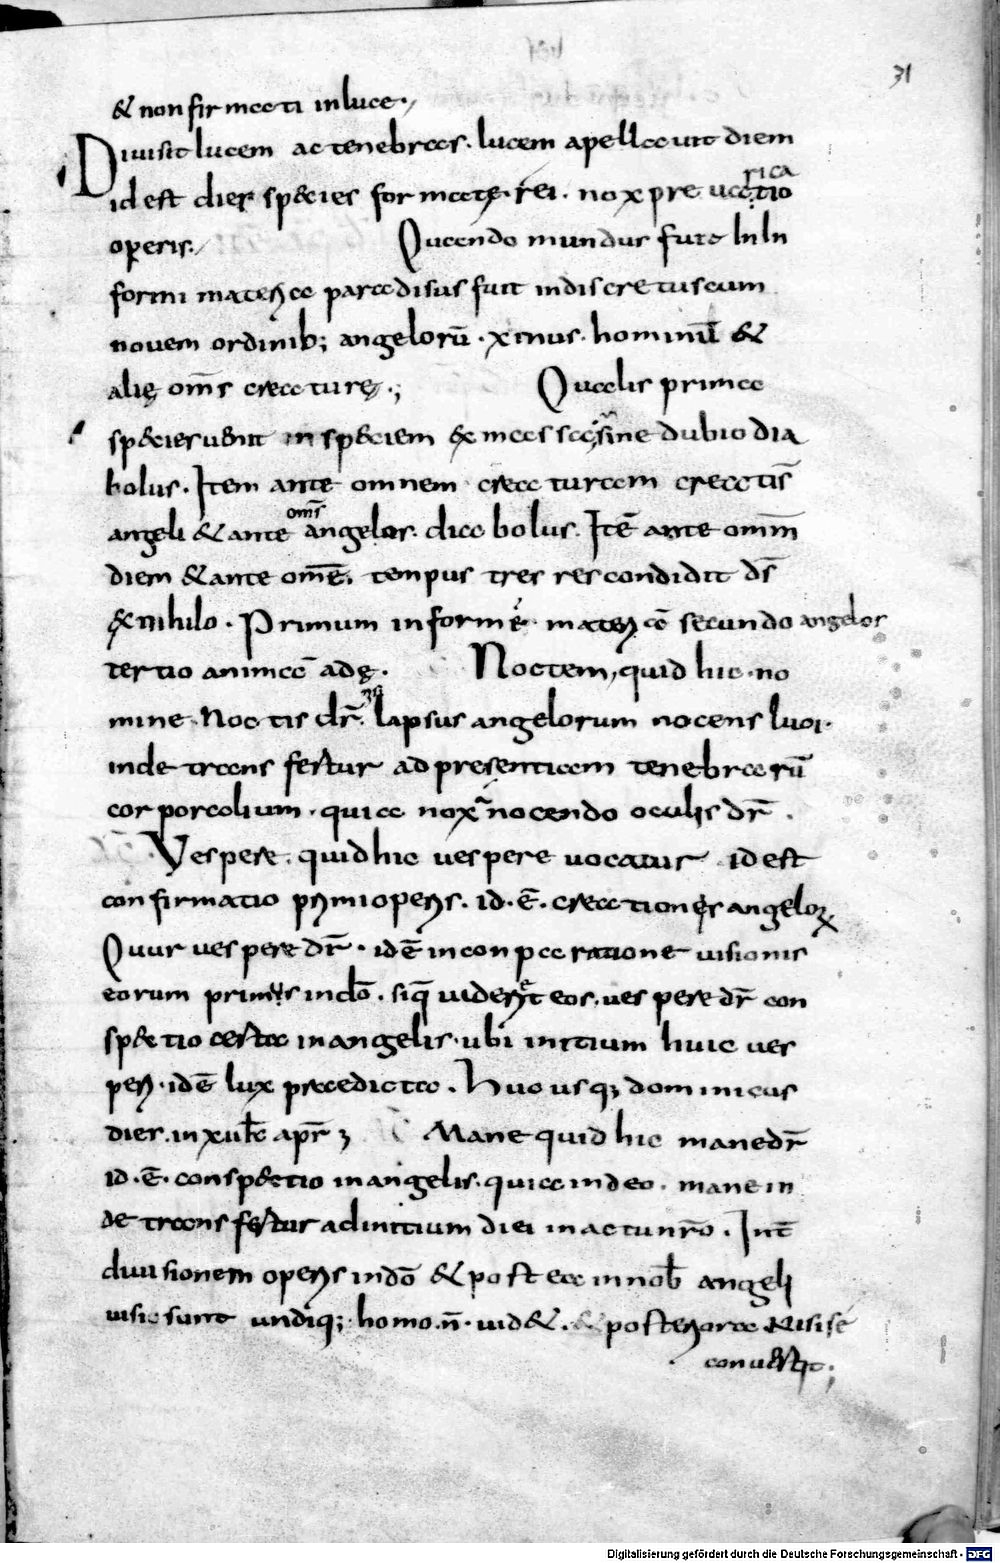 31
& non firmati in luce.
Diuisit lucem ac tenebras. lucem apellauit diem
id est dies sp&ies formatę rei. nox preuaricatio
operis. Quando mundus fuit in in
formi materia paradisus fuit indiscretus cum
nouem ordinib; angelorū. xmus. hominū &
alię om̄s creaturę.; Qualis prima
sp&ies uenit in sp&iem sine dubio dia
bolus. Item ante omnem creaturam creatis̄
angeli & ante om̄s angelos. diabolus. Itē ante omm̄
diem & ante omē. tempus tres res condidit ds̄
ex nihilo. Primum informē materiā secundo angelos
tertio animā adę. Noctem, quid hic no
mine Noctis dr̄. lapsus angelorum nocens luci.
inde trans fertur ad presentiam tenebrarū
corporalium. quia nox a nocendo oculis dr̄.
Vespere. quid hic uespere uocatur id est
confirmatio primi operis. id. ē. creationis angeloꝝ
Quur uespere dr̄. idē in conparatione uisionis
eorum primus in do. siq̄ uiderent eos. uespere dr̄ con
sp&tio certa in angelis. ubi initium huic ues
peri. idē lux praedicta. Huc usq; dominicus
dies. in xu kł apr̄ ; Mane quid hic mane dr̄
id. ē. consp&tio in angelis. quia in deo. mane in
de trans fertur ad initium diei in actu nr̄o. Int̄
diuisionem operis in dō & postea in nob̄ angeli
uisi sunt undiq; homo. n̄. uid&. & posteriora nisi se
conuertit;
Digitalisierung gefördert durch die Deutsche Forschungsgemeinschaft - DFG